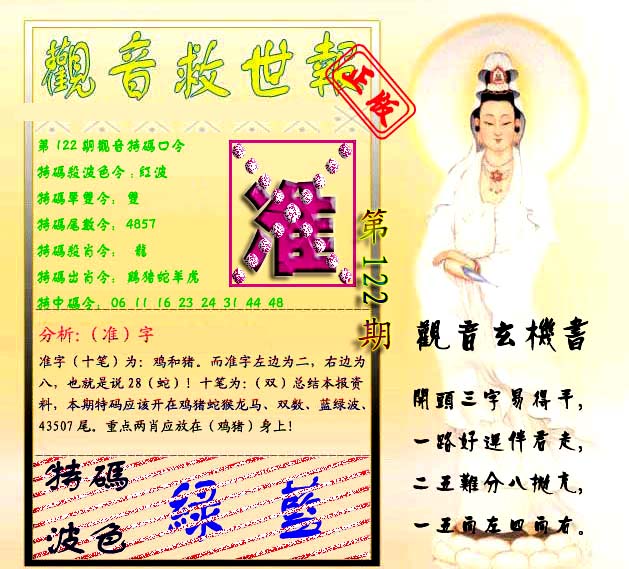 觀音救世報
正版
第122期觀音特碼口令
特碼殺波色令:紅波
特碼單雙令: 雙
特碼尾數令: 4857
特碼殺肖令: 龍
特碼出肖令: 鷄猪蛇羊虎
特中碼令: 06 11 16 23 24 31 44 48
准
第122期
分析:（准）字
准字（十笔）为：鸡和猪。而准字左边为二，右边为
八，也就是说28（蛇）！十笔为:（双）总结本报资
料，本期特码应该开在鸡猪蛇猴龙马、双数、蓝绿波、
43507尾。重点两肖应放在（鸡猪）身上!
特碼
波色
綠 藍
觀音玄機書
開頭三字易得平,
一路好運伴君走,
二五難分八拋九,
一五而左四而右。